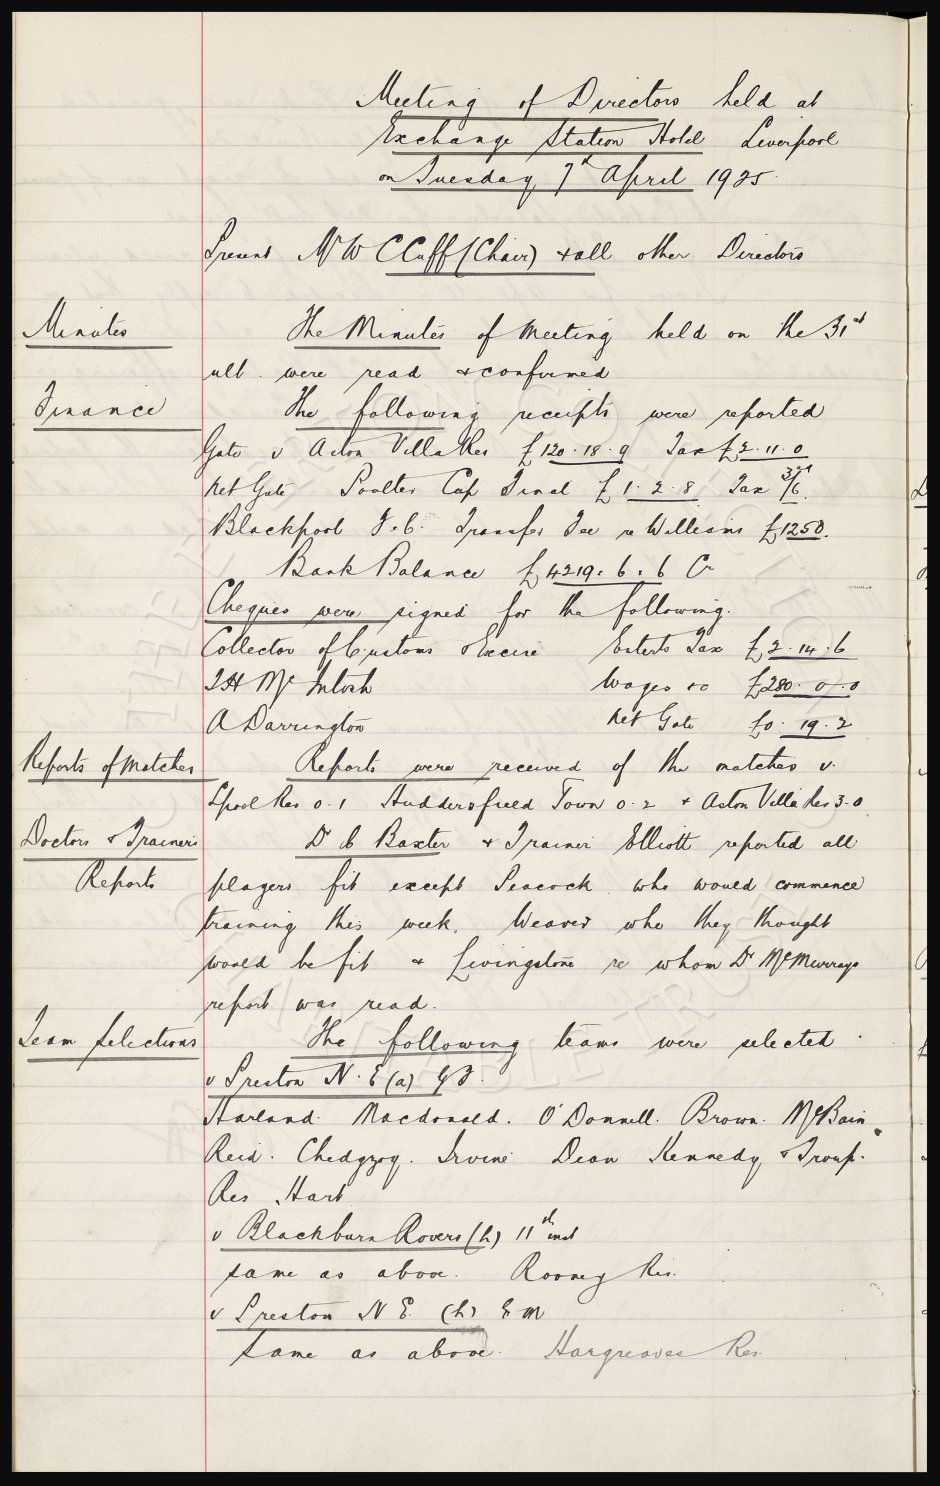 Meeting of Directors held at
Exchange Station Hotel Liverpool
on Tuesday 7th April 1925.
Present Mr W C Cuff (Chair) + all other Directors
Minutes
The Minutes of meeting held on the 31st
ult. were read + confirmed
Finance
The following receipts were reported
Gate v Aston Villa Res £120.18.9 Tax £2.11.0
Net Gate Poulter Cup Final £1.2.8 Tax 3/6
Blackpool F.C. Transfer Fee re Williams £1250.
Bank Balance £4219.6.6 Cr
Cheques were signed for the following.
Collector of Customs & Excise Enterts Tax £2.14.6
T H McIntosh Wages &c £280.0.0
A Darrington Net Gate £0.19.2
Reports of Matches
Reports were received of the matches v.
Lpool Res 0.1 Huddersfield Town 0.2 + Aston Villa Res 3-0
Doctors & Trainers
Reports
Dr Baxter + Trainer Elliott reported all
players fit except Peacock who would commence
training this week. Weaver who they thought
would be fit + Livingstone re whom Dr McMurrays
report was read.
Team Selections
The following teams were selected
v Preston N.E (a) GF.
Harland. Macdonald. O'Donnell. Brown. McBain
Reid. Chedgzoy. Irvine Dean Kennedy & Troup.
Res Hart
v Blackburn Rovers (h) 11th inst
same as above. Rooney Res.
v Preston N E. (h) E M
same as above. Hargreaves Res.